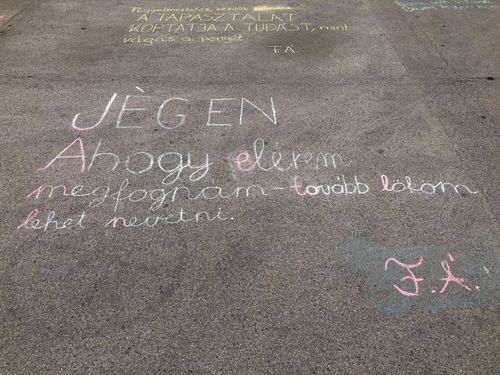 Fegyelmezetlen, kezdők számára
A TAPASZTALAT
KOPTATJA A TUDÁST, mint
vágás a penyét.
F.Á.
JÈGEN
Ahogy elérem
megfognám - tovább lököm
lehet nevetni.
F.Á.